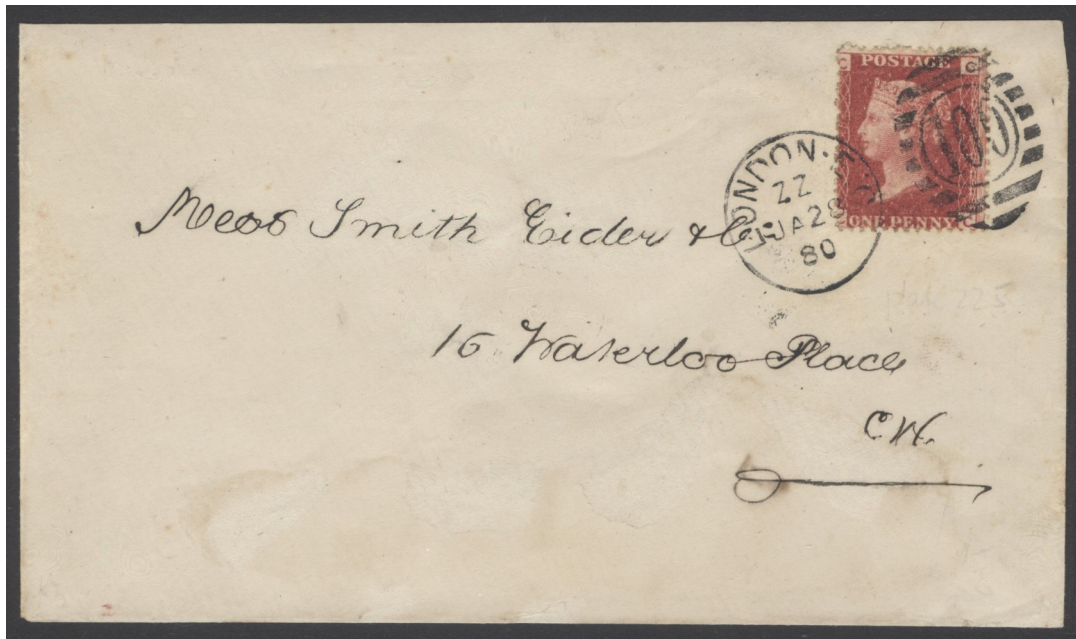 C POSTAGE C
ONE PENNY
LONDON
ZZ
JA 28
80
100
Mess Smith Eider & Co
16 Waterloo Place
plate 225